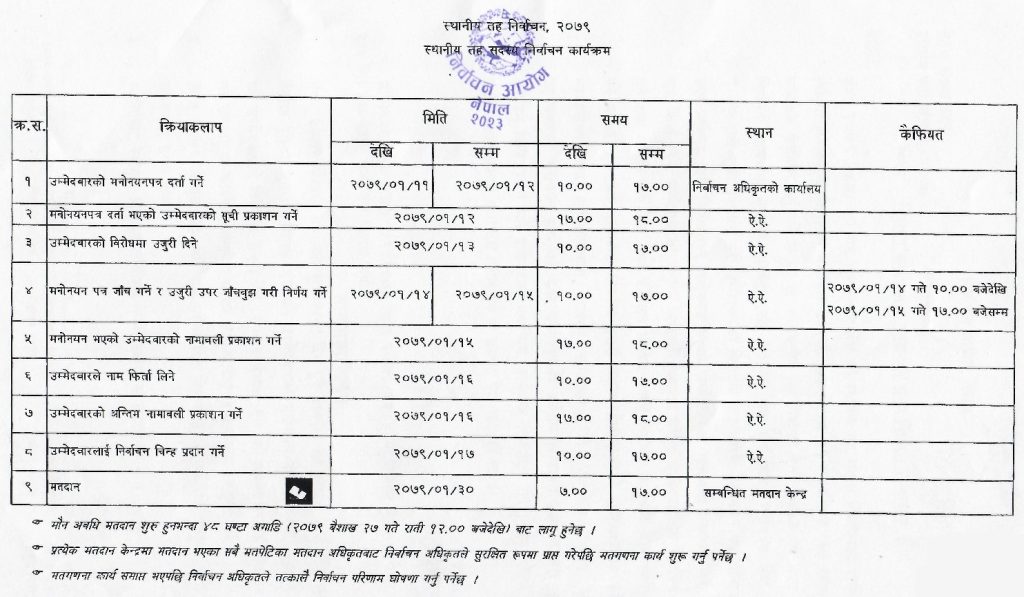 स्थानीय तह निर्वाचन, २०७९
स्थानीय तह सदस्य निर्वाचन कार्यक्रम
निर्वाचन आयोग
नेपाल
२०२३
क्र.स. क्रियाकलाप मिति समय स्थान कैफियत
देखि सम्म देखि सम्म
१ उम्मेदबारको मनोनयनपत्र दर्ता गर्ने २०७९/०१/११ २०७९/०१/१२ १०.०० १७.०० निर्वाचन अधिकृतको कार्यालय
२ मनोनयनपत्र दर्ता भएको उम्मेदबारको सूची प्रकाशन गर्ने २०७९/०१/१२ १७.०० १८.०० ऐ.ऐ.
३ उम्मेदबारको बिरोधमा उजुरी दिने २०७९/०१/१३ १०.०० १७.०० ऐ.ऐ.
४ मनोनयन पत्र जाँच गर्ने र उजुरी उपर जाँचबुझ गरी निर्णय गर्ने २०७९/०१/१४ २०७९/०१/१५ १०.०० १७.०० ऐ.ऐ. २०७९/०१/१४ गते १०.०० बजेदेखि
२०७९/०१/१५ गते १७.०० बजेसम्म
५ मनोनयन भएको उम्मेदबारको नामाबली प्रकाशन गर्ने २०७९/०१/१५ १७.०० १८.०० ऐ.ऐ.
६ उम्मेदबारले नाम फिर्ता लिने २०७९/०१/१६ १०.०० १७.०० ऐ.ऐ.
७ उम्मेदबारको अन्तिम नामाबली प्रकाशन गर्ने २०७९/०१/१६ १७.०० १८.०० ऐ.ऐ.
८ उम्मेदवारलाई निर्बाचन चिन्ह प्रदान गर्ने २०७९/०१/१७ १०.०० १७.०० ऐ.ऐ.
९ मतदान २०७९/०१/३० ७.०० १७.०० सम्बन्धित मतदान केन्द्र
☞ मौन अबधि मतदान शुरु हुनभन्दा ४८ घण्टा अगाडि (२०७९ बैशाख २७ गते राती १२.०० बजेदेखि) बाट लागू हुनेछ ।
☞ प्रत्येक मतदान केन्द्रमा मतदान भएका सबै मतपेटिका मतदान अधिकृतबाट निर्वाचन अधिकृतले सुरक्षित रूपमा प्राप्त गरेपछि मतगणना कार्य शुरू गर्नु पर्नेछ ।
☞ मतगणना कार्य समाप्त भएपछि निर्वाचन अधिकृतले तत्कालै निर्वाचन परिणाम घोषणा गर्नु पर्नेछ ।